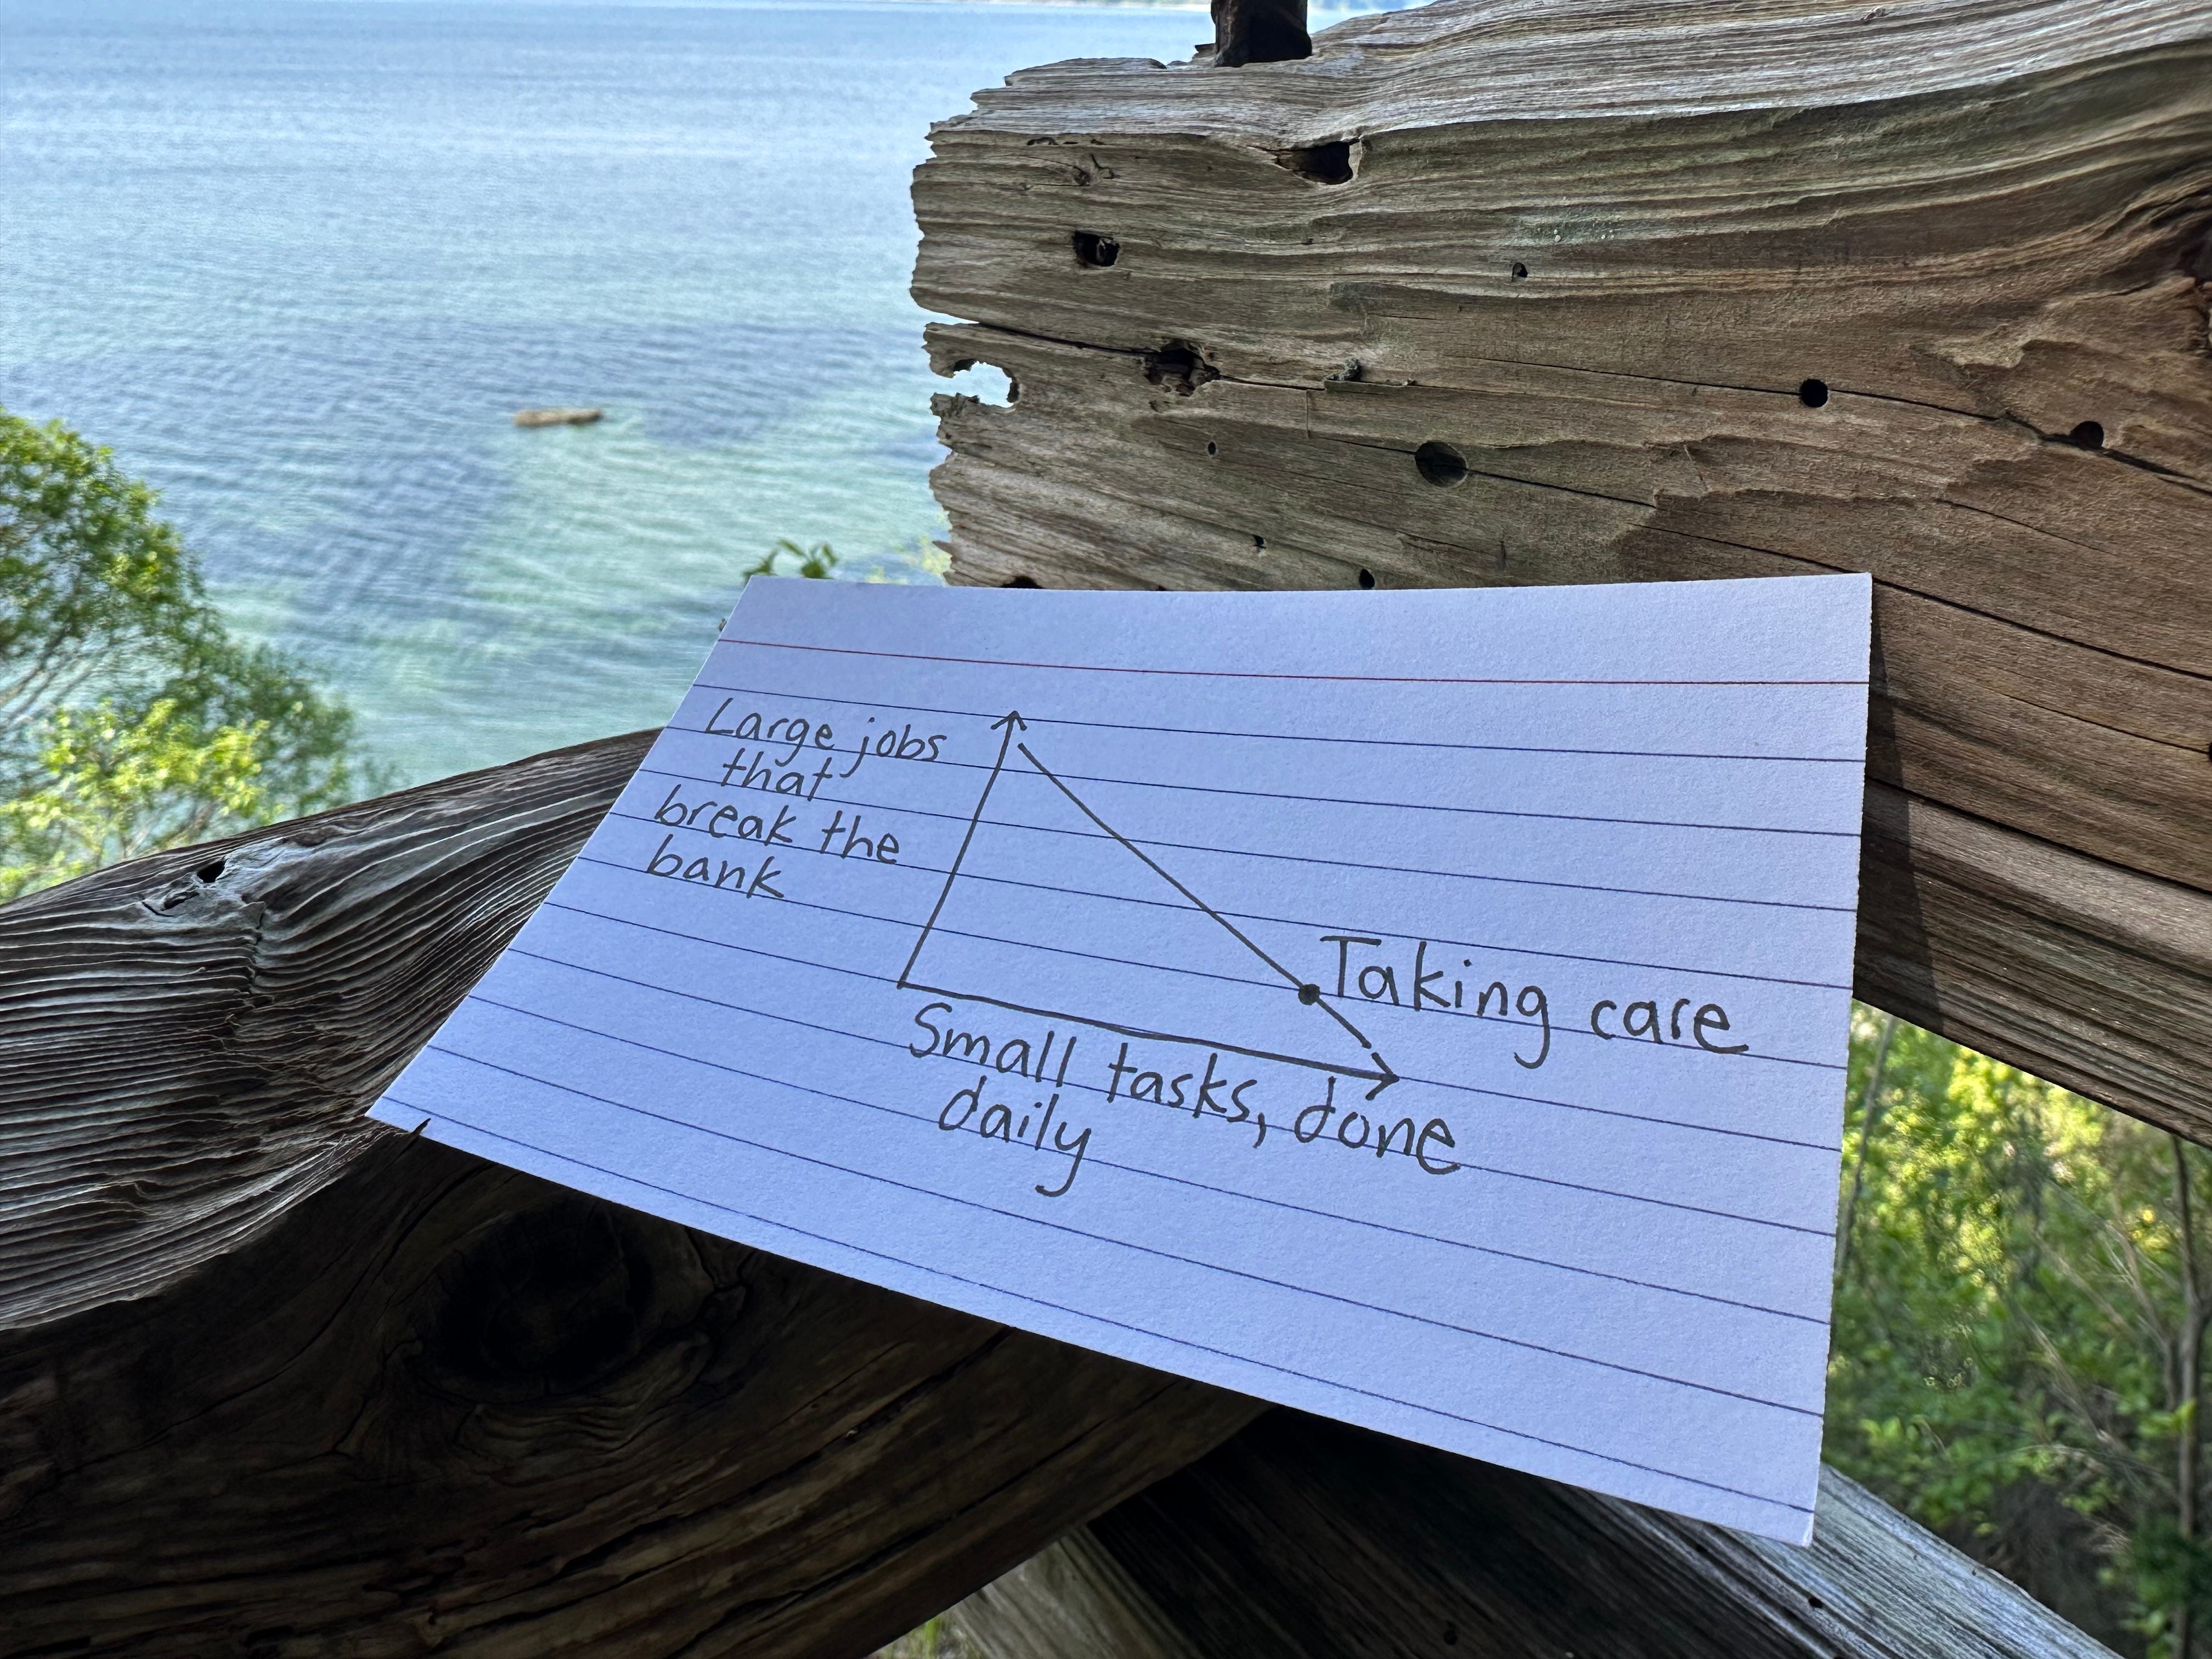 Large jobs
that
break the
bank
Taking care
Small tasks, done
daily